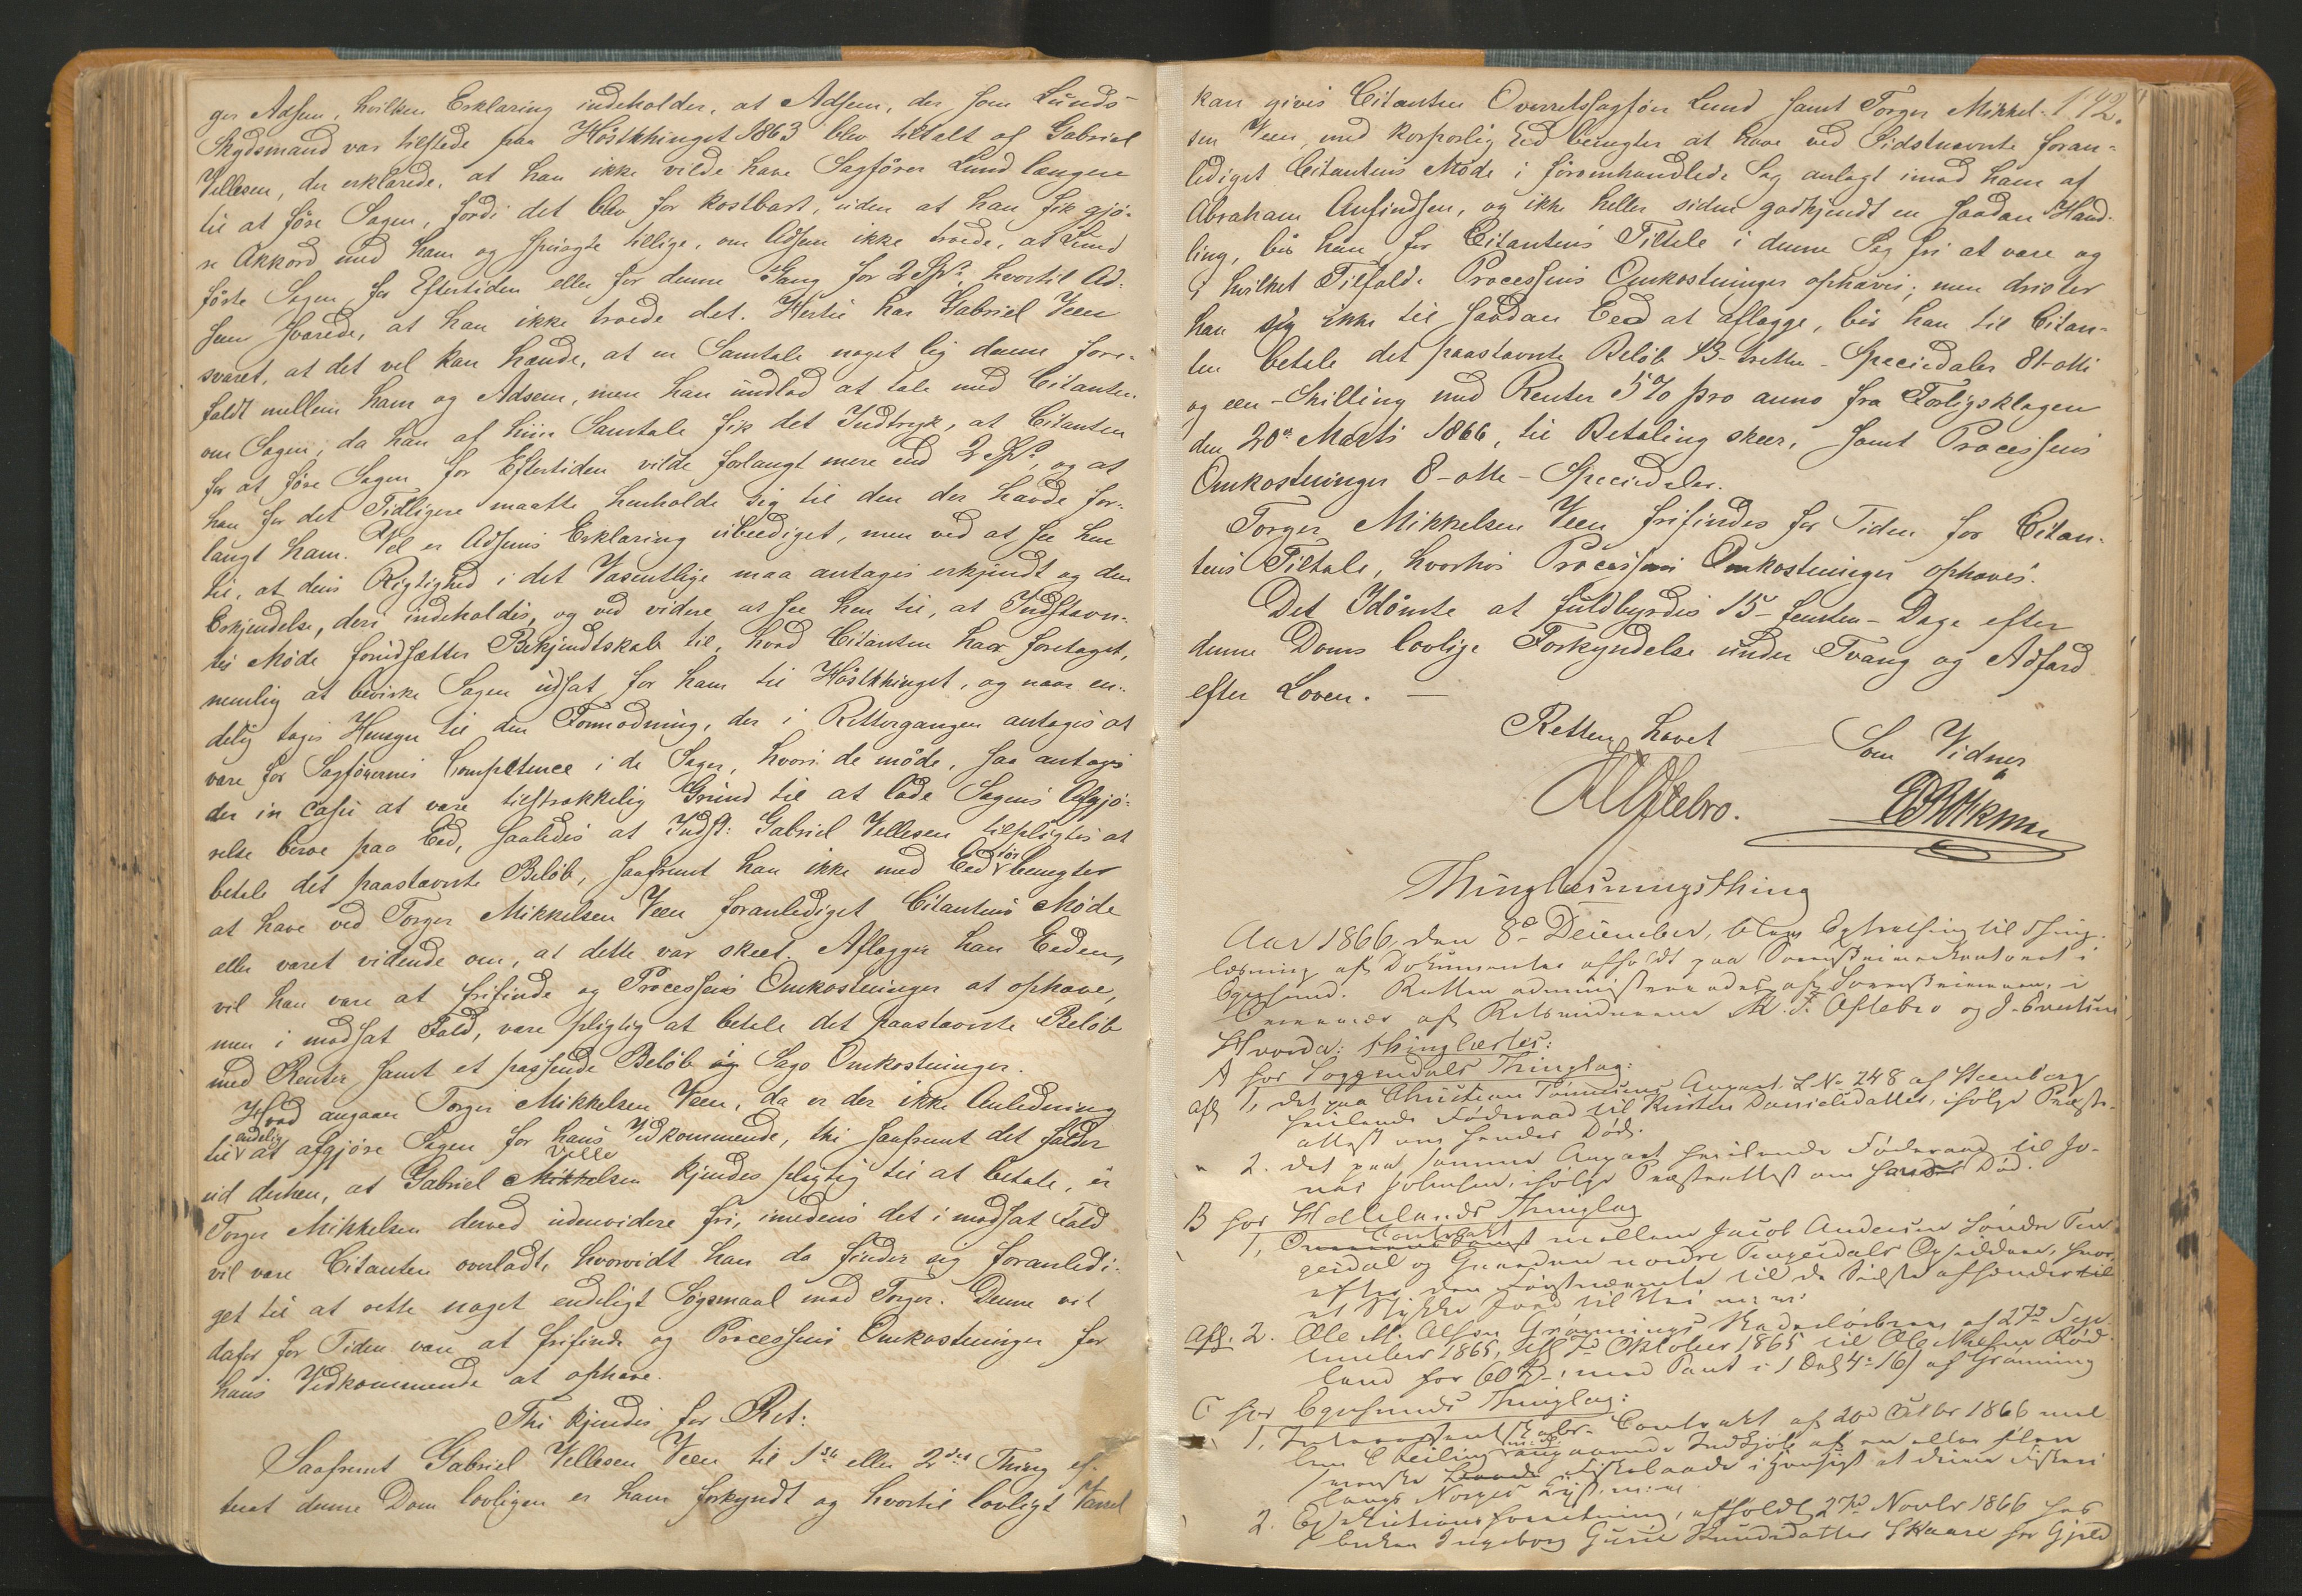 ger Adsem, hvilken Erklæring indeholder, at Adsem, der som Lunds
Skydsmand var tilstede paa Høstthinget 1863 blev tiltalt af Gabriel
Vellesen, der erklærede, at han ikke vilde have Sagfører Lund længere
til at føre Sagen, fordi det blev for kostbart, uden at han fik gjø-
re Akkord med ham og spurgte tillige, om Adsem ikke troede, at Lund
førte Sagen for Eftertiden eller for denne Gang for 2 Spd, hvortil Ad-
sem svarede, at han ikke troede det. Hertil har Gabriel Veen
svaret, at det vel kan hænde, at en Samtale noget lig denne fore-
faldt mellem ham og Adsem, men han undlod at tale med Citanten
om Sagen, da han af hiin Samtale fik det Indtryk, at Citanten
for at føre Sagen for Eftertiden vilde forlangt mere end 2 Spd, og at
han for det Tidligere maatte henholde sig til den der havde for-
langt ham. Vel er Adsems Erklæring ubeediget, men ved at see hen
til, at dens Rigtighed i det Væsentlige maa antages erkjendt og den
Erkjendelse, deri indeholdes, og ved videre at see hen til, at Indstævn-
tes Møde forudsætter Bekjendtskab til, hvad Citanten har foretaget,
nemlig at bevirke Sagen udsat for ham til Høstthinget, og naar en-
delig tages Hensyn til den Formodning, der i Rettergangen antages at
være for Sagførernes Competence i de Sager, hvori de møde, saa antages
der in casu at være tilstrækkelig Grund til at lade Sagens Afgjø-
relse beroe paa Eed, saaledes at Indst: Gabriel Vellesen tilpligtes at
betale det paastævnte Beløb, saafremt han ikke med Eed tør benegter
at have ved Torger Mikkelsen Veen foranlediget Citantens Møde
eller været vidende om, at dette var skeet. Aflægger han Eeden,
vil han være at frifinde og Processens Omkostninger at ophæve,
men i modsat Fald, være pligtig at betale det paastævnte Beløb
med Renter samt et passende Beløb og Sags Omkostninger.
Hvad angaaer Torger Mikkelsen Veen, da er der ikke Anledning
til endelig at afgjøre Sagen for hans Vidkommende, thi saafremt det falder
ud derhen, at Gabriel Mikkelsen Velle kjendes pligtig til at betale, er
Torger Mikkelsen derved udenvidere fri, imedens det i modsat Fald
vil være Citanten overladt, hvorvidt han da finder sig foranledi-
get til at rette noget endeligt Søgsmaal mod Torger. Denne vil
dafor for Tiden være at frifinde og Processens Omkostninger for
hans Vidkommende at ophæve.
Thi kjendes for Ret:
Saafremt Gabriel Vellesen Veen til 1ste eller 2det Thing ef-
terat denne Dom lovligen er ham forkyndt og hvortil lovligt Varsel
192.
kan gives Citanten Overretssagfører Lund samt Torger Mikkel-
sen Veen, med korporlig Eed benegter at have ved Sidstnævnte foran-
lediget Citantens Møde i føromhandlede Sag anlagt imod ham af
Abraham Ansindsen, og ikke heller siden godkjendt en saadan Hand-
ling, bør han for Citantens Tiltale i denne Sag fri at være og
i hvilket Tilfælde Processens Omkostninger ophæves; men drister
han sig ikke til saadan Eed at aflægge, bør han til Citan-
ten betale det paastævnte Beløb 13-tretten-Speciedaler 81-otti
og een-Skilling med Renter 5% pro anno fra Forligsklagen
den 20de Marts 1866, til Betaling skeer, samt Processens
Omkostninger 8-otte-Speciedaler.
Torger Mikkelsen Veen frifindes for Tiden for Citan-
tens Tiltale, hvorhos Processens Omkostninger ophæves.
Det Idømte at fuldbyrdes 15-femten-Dage efter
denne Doms lovlige Forkyndelse under Tvang og Adfærd
efter Loven. —
Retten hævet
Som Vidner
Aftebro.
Thinglæsningsthing
Aar 1866, den 8de December, blev Extrathing til Thing-
læsning af Dokumenter afholdt paa Sorenskriverkontoret i
Egersund. Retten administreredes af Sorenskriveren, i
Overvær af Retsvidnerne M. F. Aftebro og J. Evertsen
Hvorda: thinglæstes:
A for Soggendals Thinglag:
afl 1, det paa Christian Tønnesens Anpart L No 248 af Steenberg
heilende Føderaad til Kirsten Danielsdatter, ifølge Præste-
attest om hendes Død.
" 2. det paa samme Anpart heilende Føderaad til Jo-
nas Johnsen, ifølge Præsteattest om hans Død.
B for Hellelands Thinglag
1, Contract mellem Jacob Andersen Søndre
og nordre Opsiddere, hvor-
efter den Førstnævnte til de Sidste afhænder
et Stykke Jord til m: m:
Afl. 2. Ole M. Olsen Grønnings Skadesløsbrev af 27de Sep-
tember 1865, 7de Oktober 1865 til Ole Nielsen Rød-
land for 60 Spd med Pant i 1 Dal 4-16 af Grønning
C for Egersunds Thinglag:
1, Interessentskabs-Contrakt af 20de Octbr 1866 mel-
lem m: fl: angaaende Indkjøb af en eller flere
svenske Fiskebaade i Hensigt at drive Fiskeri
langs Norges Kyst. m: m.
2. Executionsforretning, afholdt 27de Novbr 1866 hos
Enken Ingeborg Gurie Knudsdatter Skaare for Gjæld